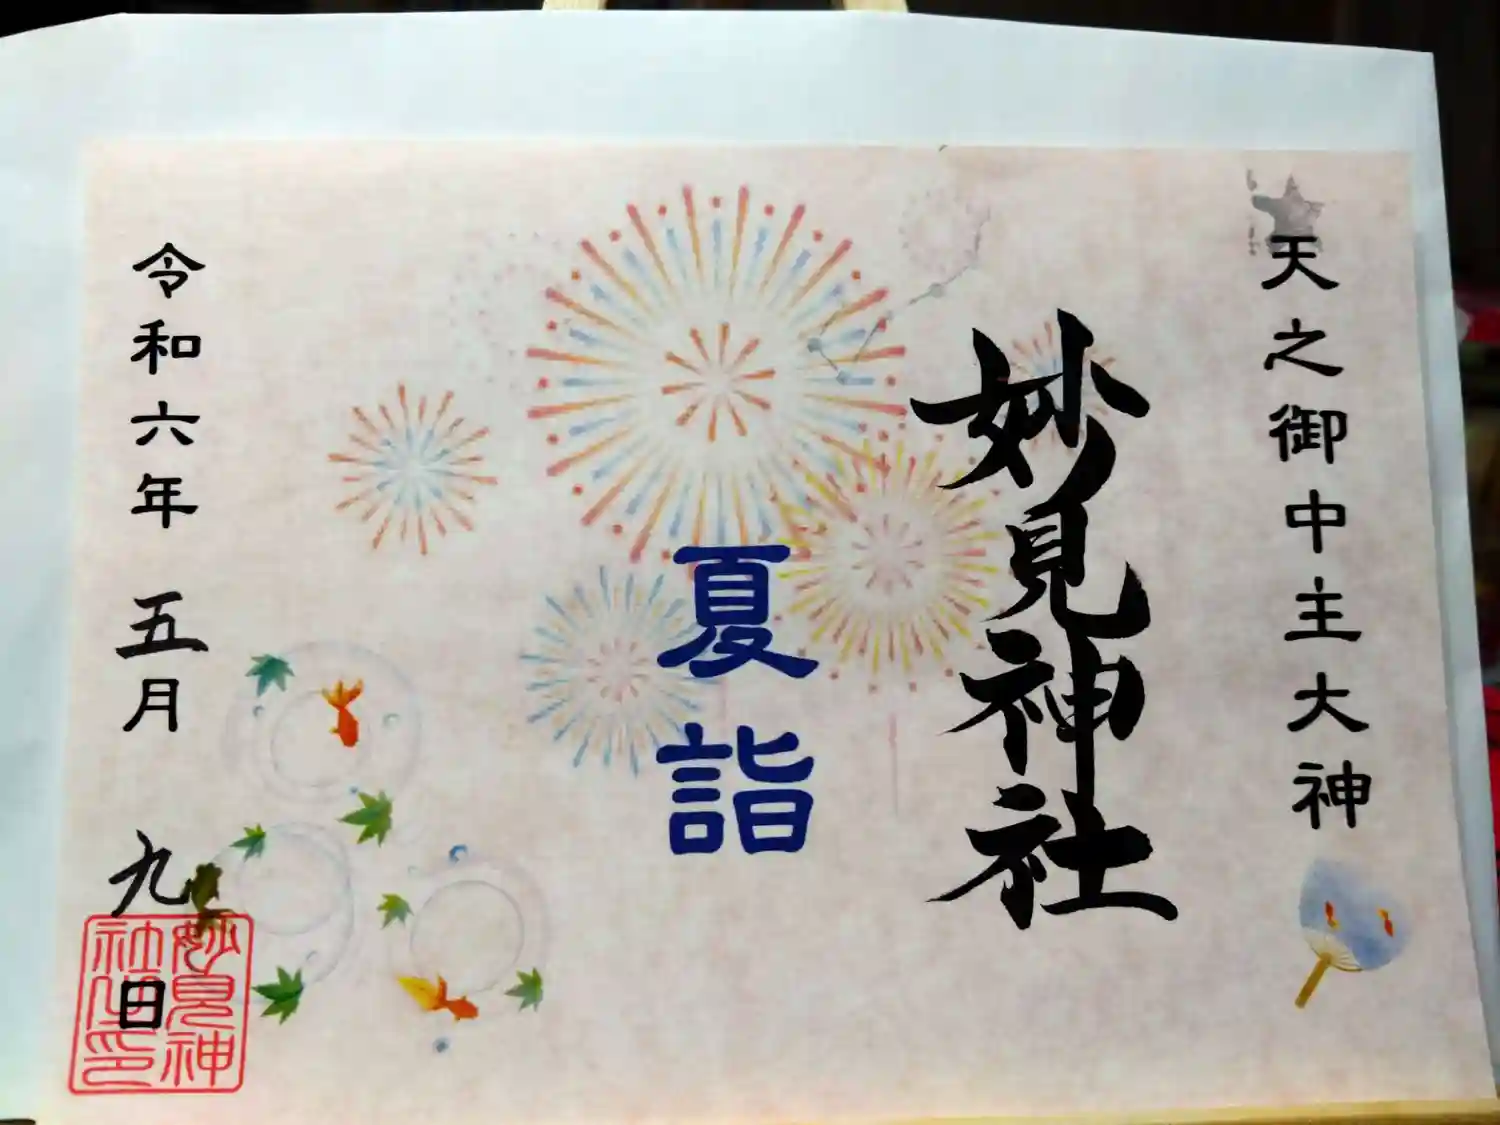 天之御中主大神
妙見神社
夏詣
令和六年 五月 九日
妙見神
社之印